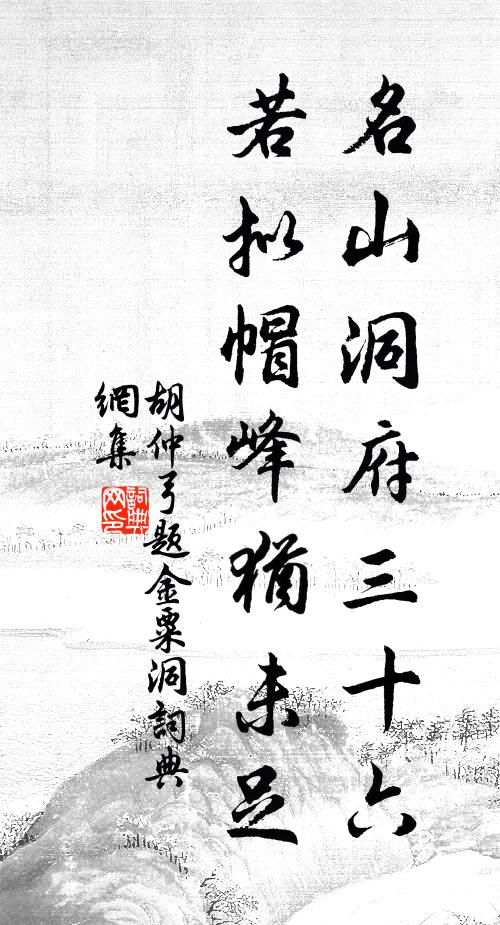 名山洞府三十六
若擬帽峰猶未足
胡仲弓題金粟洞詞典
網集
詞典
网印